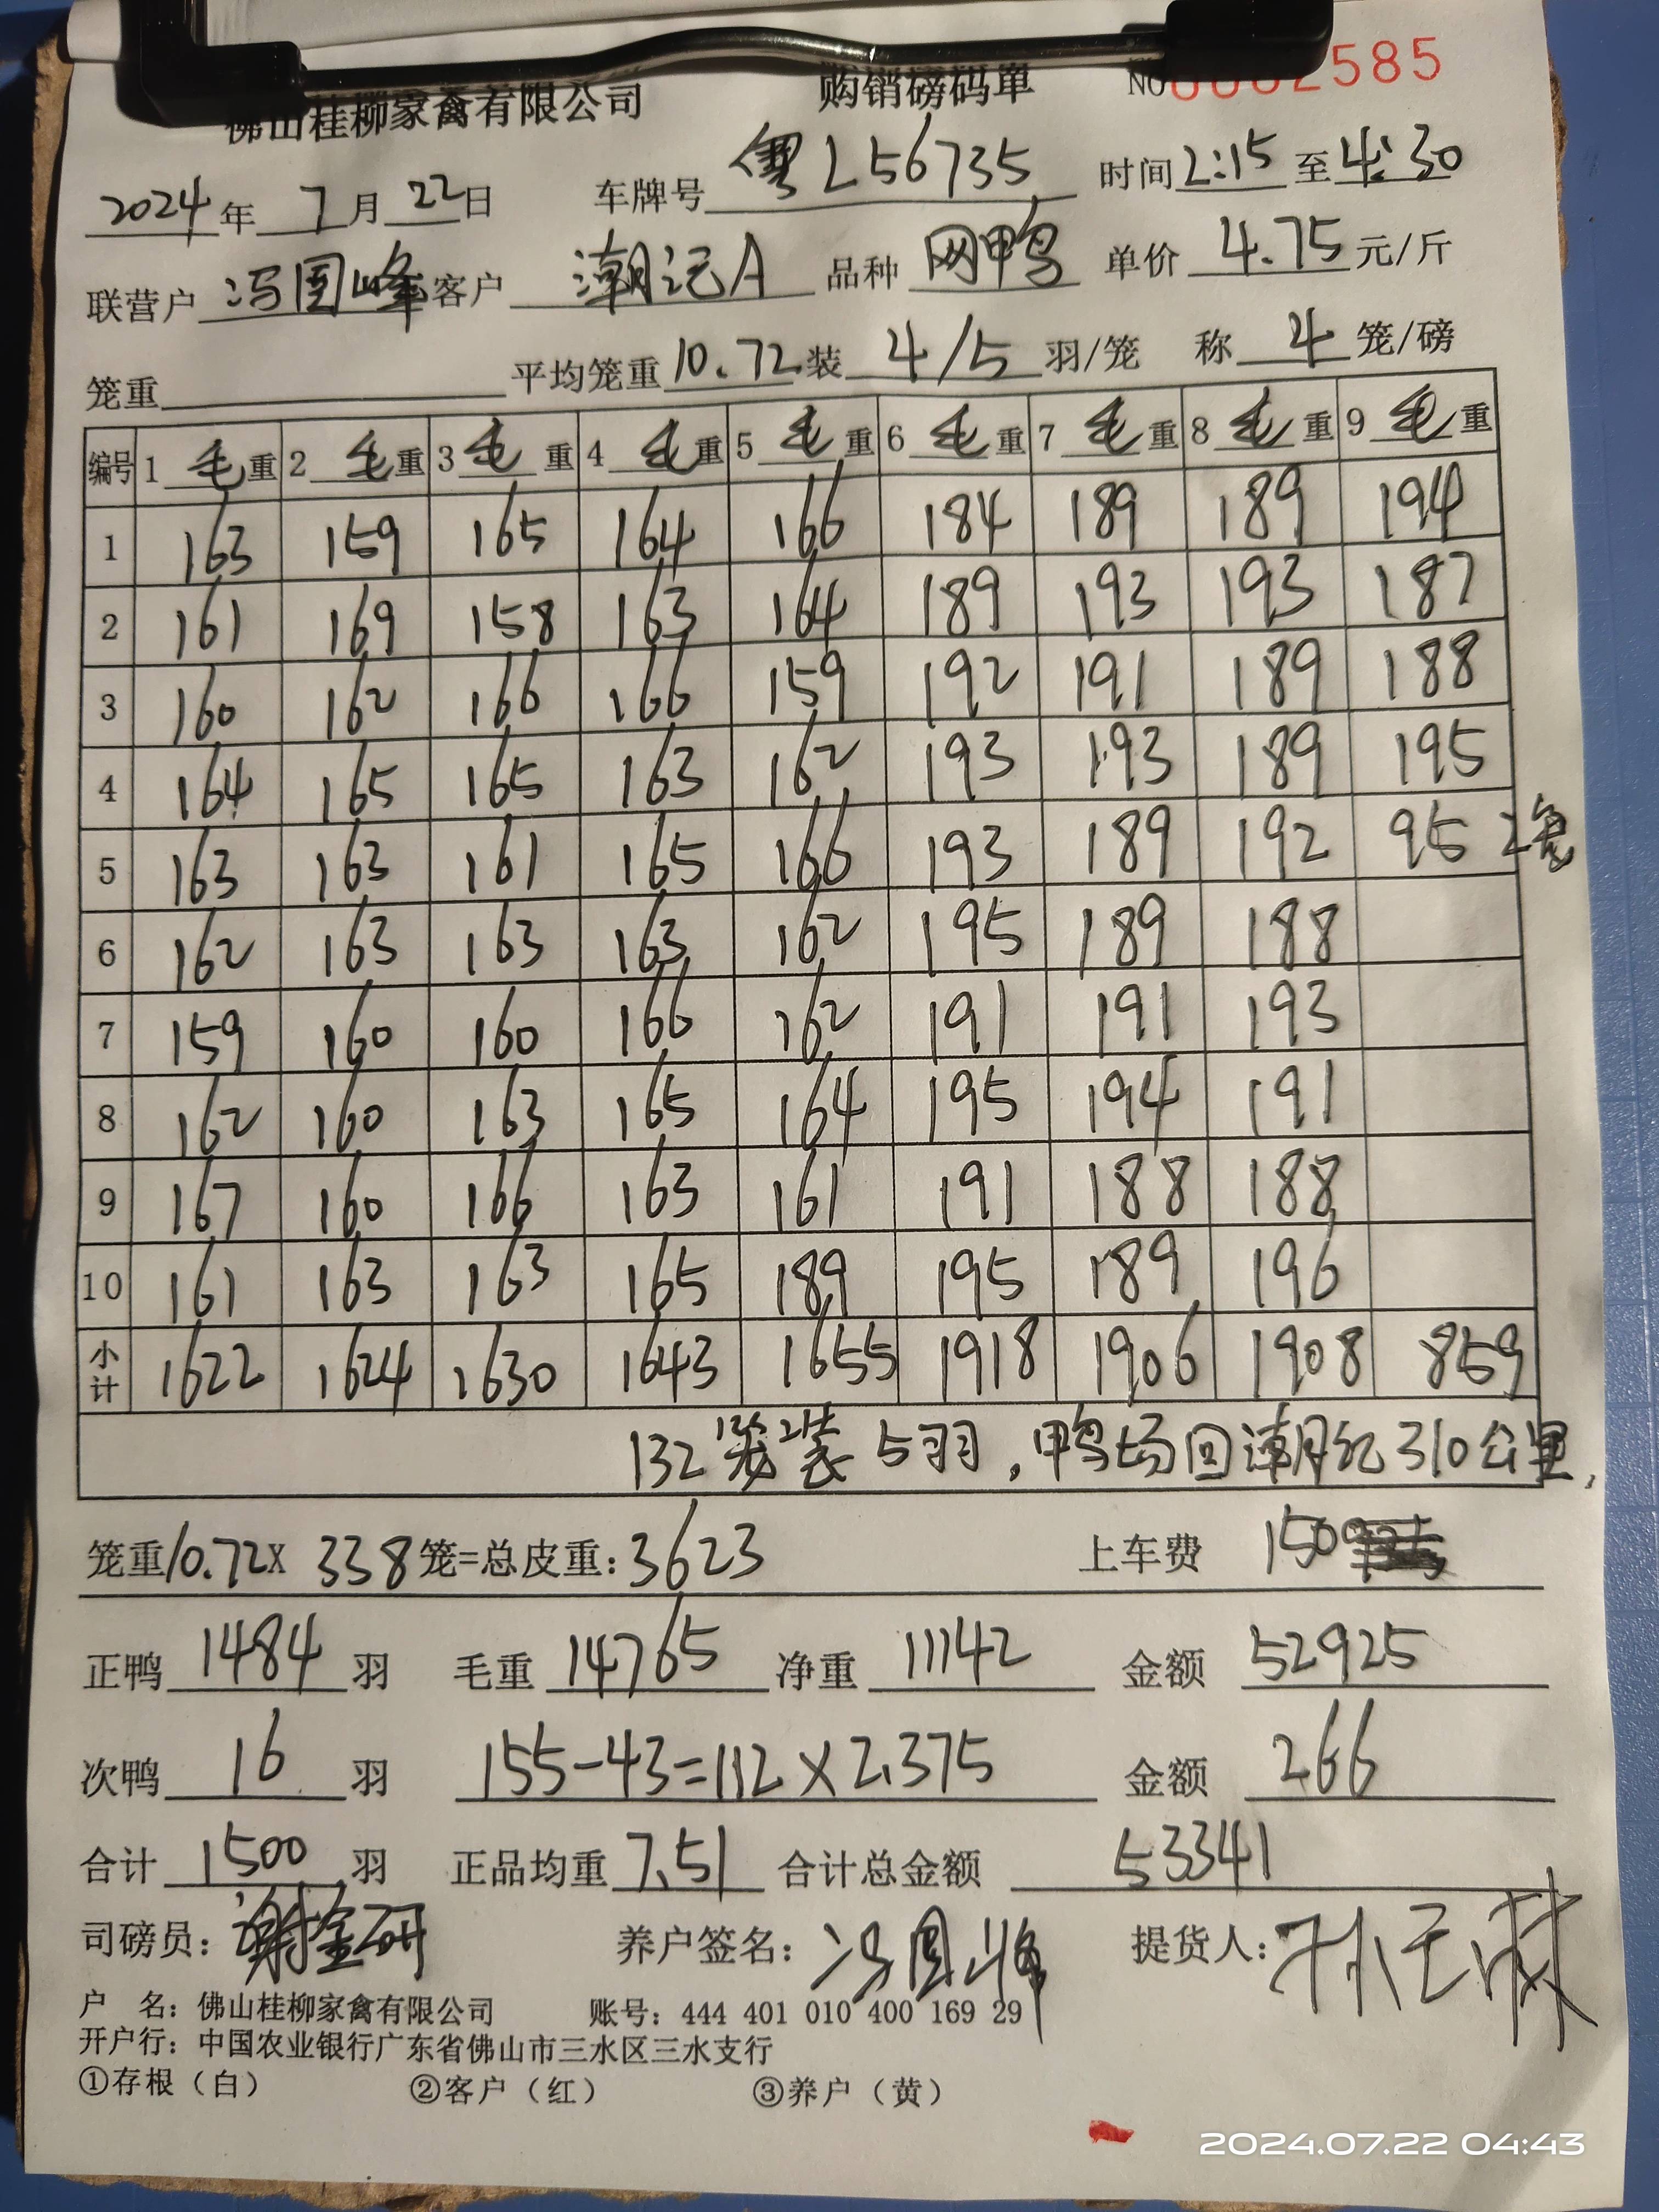 佛山桂柳家禽有限公司 购销磅码单 NO 2585
2024年 7月 22日 车牌号 粤L56735 时间 2:15 至 4:30
联营户 冯国峰 客户 潮记A 品种 网鸭 单价 4.75 元/斤
笼重 平均笼重 10.72 装 4/5 羽/笼 称 4 笼/磅
编号 1 毛重 2 毛重 3 毛重 4 毛重 5 毛重 6 毛重 7 毛重 8 毛重 9 毛重
1 163 159 165 164 166 184 189 189 194
2 161 169 158 163 164 189 193 193 187
3 160 162 166 166 159 192 191 189 188
4 164 165 165 163 162 193 193 189 195
5 163 163 161 165 166 193 189 192 95 2笼
6 162 163 163 163 162 195 189 188
7 159 160 160 166 162 191 191 193
8 162 160 163 165 164 195 194 191
9 167 160 166 163 161 191 188 188
10 161 163 163 165 189 195 189 196
小计 1622 1624 1630 1643 1655 1918 1906 1908 859
132笼装5羽，鸭场回潮记310公里，
笼重 10.72 X 338 笼=总皮重：3623 上车费 150
正鸭 1484 羽 毛重 14765 净重 11142 金额 52925
次鸭 16 羽 155-43=112×2.375 金额 266
合计 1500 羽 正品均重 7.51 合计总金额 53341
司磅员：谢金研 养户签名：冯国峰 提货人：
户 名：佛山桂柳家禽有限公司 账号：444 401 010 400 169 29
开户行：中国农业银行广东省佛山市三水区三水支行
①存根（白） ②客户（红） ③养户（黄）
2024.07.22 04:43